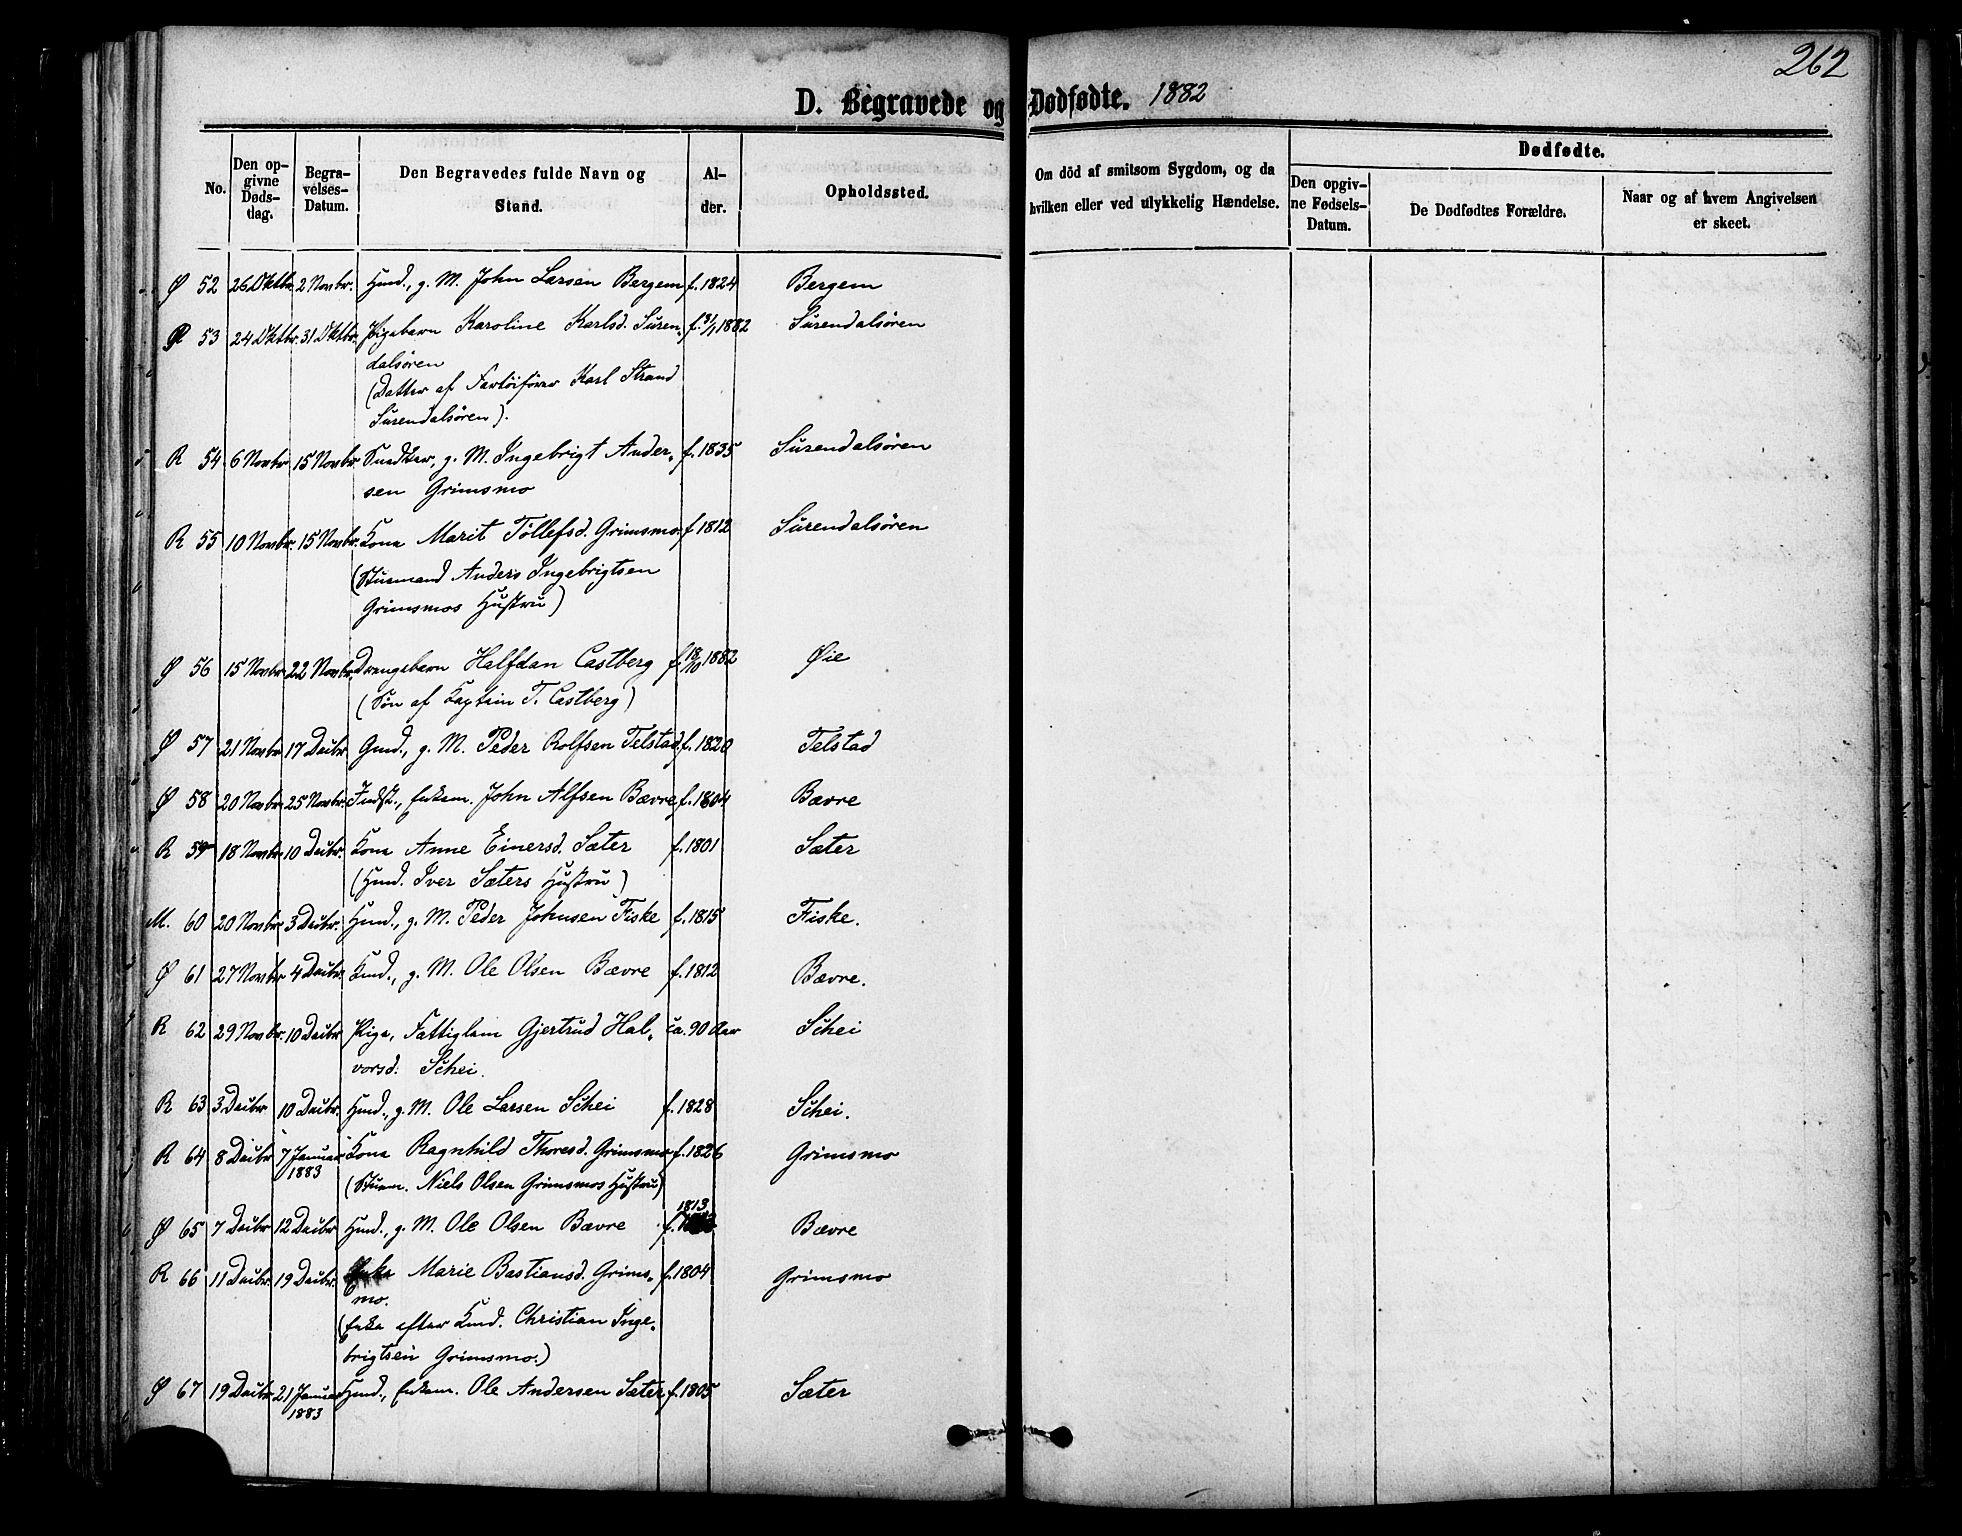 262
D. Begravede og Dødfødte. 1882
No.
Den opgivne Dødsdag.
Begravelses-Datum.
Den Begravedes fulde Navn og Stand.
Alder.
Opholdssted.
Om död af smitsom Sygdom, og da hvilken eller ved ulykkelig Hændelse.
Dødfødte.
Den opgivne Fødsels-Datum.
De Dødfødtes Forældre.
Naar og af hvem Angivelsen er skeet.
Ø 52 26 Oktbr. 2 Novbr. Hmd., g. M. John Larsen Bergem f. 1824 Bergem
R 53 24 Oktbr. 31 Oktbr. Pigebarn Karoline Karlsd. Suren- f. 31/1 1882 Surendalsøren
dalsøren
(Datter af Fartøifører Karl Strand
Surendalsøren).
R 54 6 Novbr. 15 Novbr. Snedker, g. M. Ingebrigt Ander- f. 1835 Surendalsøren
sen Grimsmo
R 55 10 Novbr. 15 Novbr. Kone Marit Tøllefsd. Grimsmo f. 1812 Surendalsøren
(Stuemand Anders Ingebrigtsen
Grimsmos Hustru)
Ø 56 15 Novbr. 22 Novbr. Drengebarn Halfdan Castberg f. 18/10 1882 Øie
(Søn af Kaptein T. Castberg)
Ø 57 21 Novbr. 17 Decbr. Gmd., g. M. Peder Rolfsen Telstad f. 1820 Telstad
Ø 58 20 Novbr. 25 Novbr. Indst., Enkem. John Alfsen Bævre f. 1804 Bævre
R 59 18 Novbr. 10 Decbr. Kone Anne Einersd. Sæter f. 1801 Sæter
(Hmd. Iver Sæters Hustru)
M. 60 20 Novbr. 3 Decbr. Hmd., g. M. Peder Johnsen Fiske f. 1815 Fiske.
Ø 61 27 Novbr. 4 Decbr. Kmd., g. M. Ole Olsen Bævre f. 1812 Bævre.
R 62 29 Novbr. 10 Decbr. Pige, Fattiglem Gjertrud Hal- ca. 90 Aar Schei
vorsd. Schei.
R 63 3 Decbr. 10 Decbr. Hmd., g. M. Ole Larsen Schei f. 1828 Schei.
R 64 8 Decbr. 7 Januar 1883 Kone Ragnhild Thoresd. Grimsmo f. 1826 Grimsmo
(Stuem. Niels Olsen Grimsmos Hustru)
Ø 65 7 Decbr. 12 Decbr. Hmd., g. M. Ole Olsen Bævre f. 1813 Bævre
R 66 11 Decbr. 19 Decbr. Enke Marie Bastiansd. Grims- f. 1804 Grimsmo
mo.
(Enke efter Kmd. Christian Inge-
brigtsen Grimsmo.)
Ø 67 19 Decbr. 21 Januar 1883 Hmd., Enkem. Ole Andersen Sæter f. 1805 Sæter